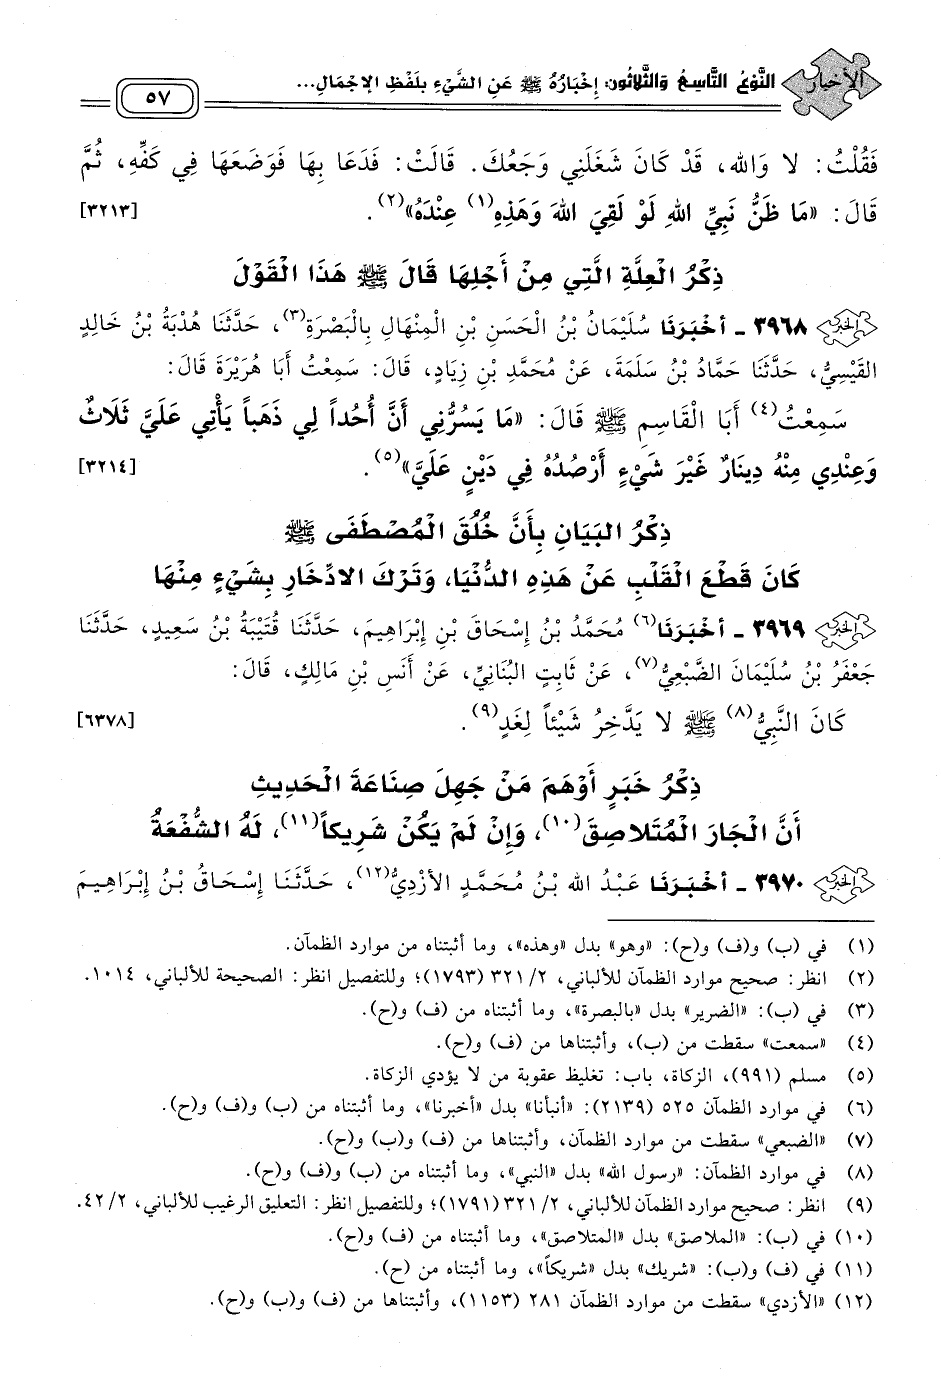 الأخبار
النَّوْعُ التَّاسِعُ وَالثَّلَاثُون: إِخْبَارُهُ ﷺ عَنِ الشَّيْءِ بِلَفْظِ الإِجْمَالِ...
٥٧
فَقُلْتُ: لا وَالله، قَدْ كَانَ شَغَلَنِي وَجَعُكَ. قَالَتْ: فَدَعَا بِهَا فَوَضَعَهَا فِي كَفِّهِ، ثُمَّ
قَالَ: «مَا ظَنُّ نَبِيِّ اللهِ لَوْ لَقِيَ اللهَ وَهَذِهِ(١) عِنْدَهُ»(٢). [٣٢١٣]
ذِكْرُ الْعِلَّةِ الَّتِي مِنْ أَجْلِهَا قَالَ ﷺ هَذَا الْقَوْلَ
الخبر ٣٩٦٨ - أَخْبَرَنَا سُلَيْمَانُ بْنُ الْحَسَنِ بْنِ الْمِنْهَالِ بِالْبَصْرَةِ(٣)، حَدَّثَنَا هُدْبَةُ بْنُ خَالِدٍ
القَيْسِيُّ، حَدَّثَنَا حَمَّادُ بْنُ سَلَمَةَ، عَنْ مُحَمَّدِ بْنِ زِيَادٍ، قَالَ: سَمِعْتُ أَبَا هُرَيْرَةَ قَالَ:
سَمِعْتُ(٤) أَبَا الْقَاسِمِ ﷺ قَالَ: «مَا يَسُرُّنِي أَنَّ أُحُداً لِي ذَهَباً يَأْتِي عَلَيَّ ثَلَاثٌ
وَعِنْدِي مِنْهُ دِينَارٌ غَيْرَ شَيْءٍ أَرْصُدُهُ فِي دَيْنٍ عَلَيَّ»(٥). [٣٢١٤]
ذِكْرُ الْبَيَانِ بِأَنَّ خُلُقَ الْمُصْطَفَى ﷺ
كَانَ قَطْعَ الْقَلْبِ عَنْ هَذِهِ الدُّنْيَا، وَتَرْكَ الادِّخَارِ بِشَيْءٍ مِنْهَا
الخبر ٣٩٦٩ - أَخْبَرَنَا(٦) مُحَمَّدُ بْنُ إِسْحَاقَ بْنِ إِبْرَاهِيمَ، حَدَّثَنَا قُتَيْبَةُ بْنُ سَعِيدٍ، حَدَّثَنَا
جَعْفَرُ بْنُ سُلَيْمَانَ الضُّبَعِيُّ(٧)، عَنْ ثَابِتٍ الْبُنَانِيِّ، عَنْ أَنَسِ بْنِ مَالِكٍ، قَالَ:
كَانَ النَّبِيُّ(٨) ﷺ لا يَدَّخِرُ شَيْئاً لِغَدٍ(٩). [٦٣٧٨]
ذِكْرُ خَبَرٍ أَوْهَمَ مَنْ جَهِلَ صِنَاعَةَ الْحَدِيثِ
أَنَّ الْجَارَ الْمُتَلاصِقَ(١٠)، وَإِنْ لَمْ يَكُنْ شَرِيكاً(١١)، لَهُ الشُّفْعَةُ
الخبر ٣٩٧٠ - أَخْبَرَنَا عَبْدُ الله بْنُ مُحَمَّدٍ الأَزْدِيُّ(١٢)، حَدَّثَنَا إِسْحَاقُ بْنُ إِبْرَاهِيمَ
(١) في (ب) و(ف) و(ح): «وهو» بدل «وهذه»، وما أثبتناه من موارد الظمآن.
(٢) انظر: صحيح موارد الظمآن للألباني، ٢/ ٣٢١ (١٧٩٣)؛ وللتفصيل انظر: الصحيحة للألباني، ١٠١٤.
(٣) في (ب): «الضرير» بدل «بالبصرة»، وما أثبتناه من (ف) و(ح).
(٤) «سمعت» سقطت من (ب)، وأثبتناها من (ف) و(ح).
(٥) مسلم (٩٩١)، الزكاة، باب: تغليظ عقوبة من لا يؤدي الزكاة.
(٦) في موارد الظمآن ٥٢٥ (٢١٣٩): «أنبأنا» بدل «أخبرنا»، وما أثبتناه من (ب) و(ف) و(ح).
(٧) «الضبعي» سقطت من موارد الظمآن، وأثبتناها من (ف) و(ب) و(ح).
(٨) في موارد الظمآن: «رسول الله» بدل «النبي»، وما أثبتناه من (ب) و(ف) و(ح).
(٩) انظر: صحيح موارد الظمآن للألباني، ٢/ ٣٢١ (١٧٩١)؛ وللتفصيل انظر: التعليق الرغيب للألباني، ٢/ ٤٢.
(١٠) في (ب): «الملاصق» بدل «المتلاصق»، وما أثبتناه من (ف) و(ح).
(١١) في (ف) و(ب): «شريك» بدل «شريكاً»، وما أثبتناه من (ح).
(١٢) «الأزدي» سقطت من موارد الظمآن ٢٨١ (١١٥٣)، وأثبتناها من (ف) و(ب) و(ح).